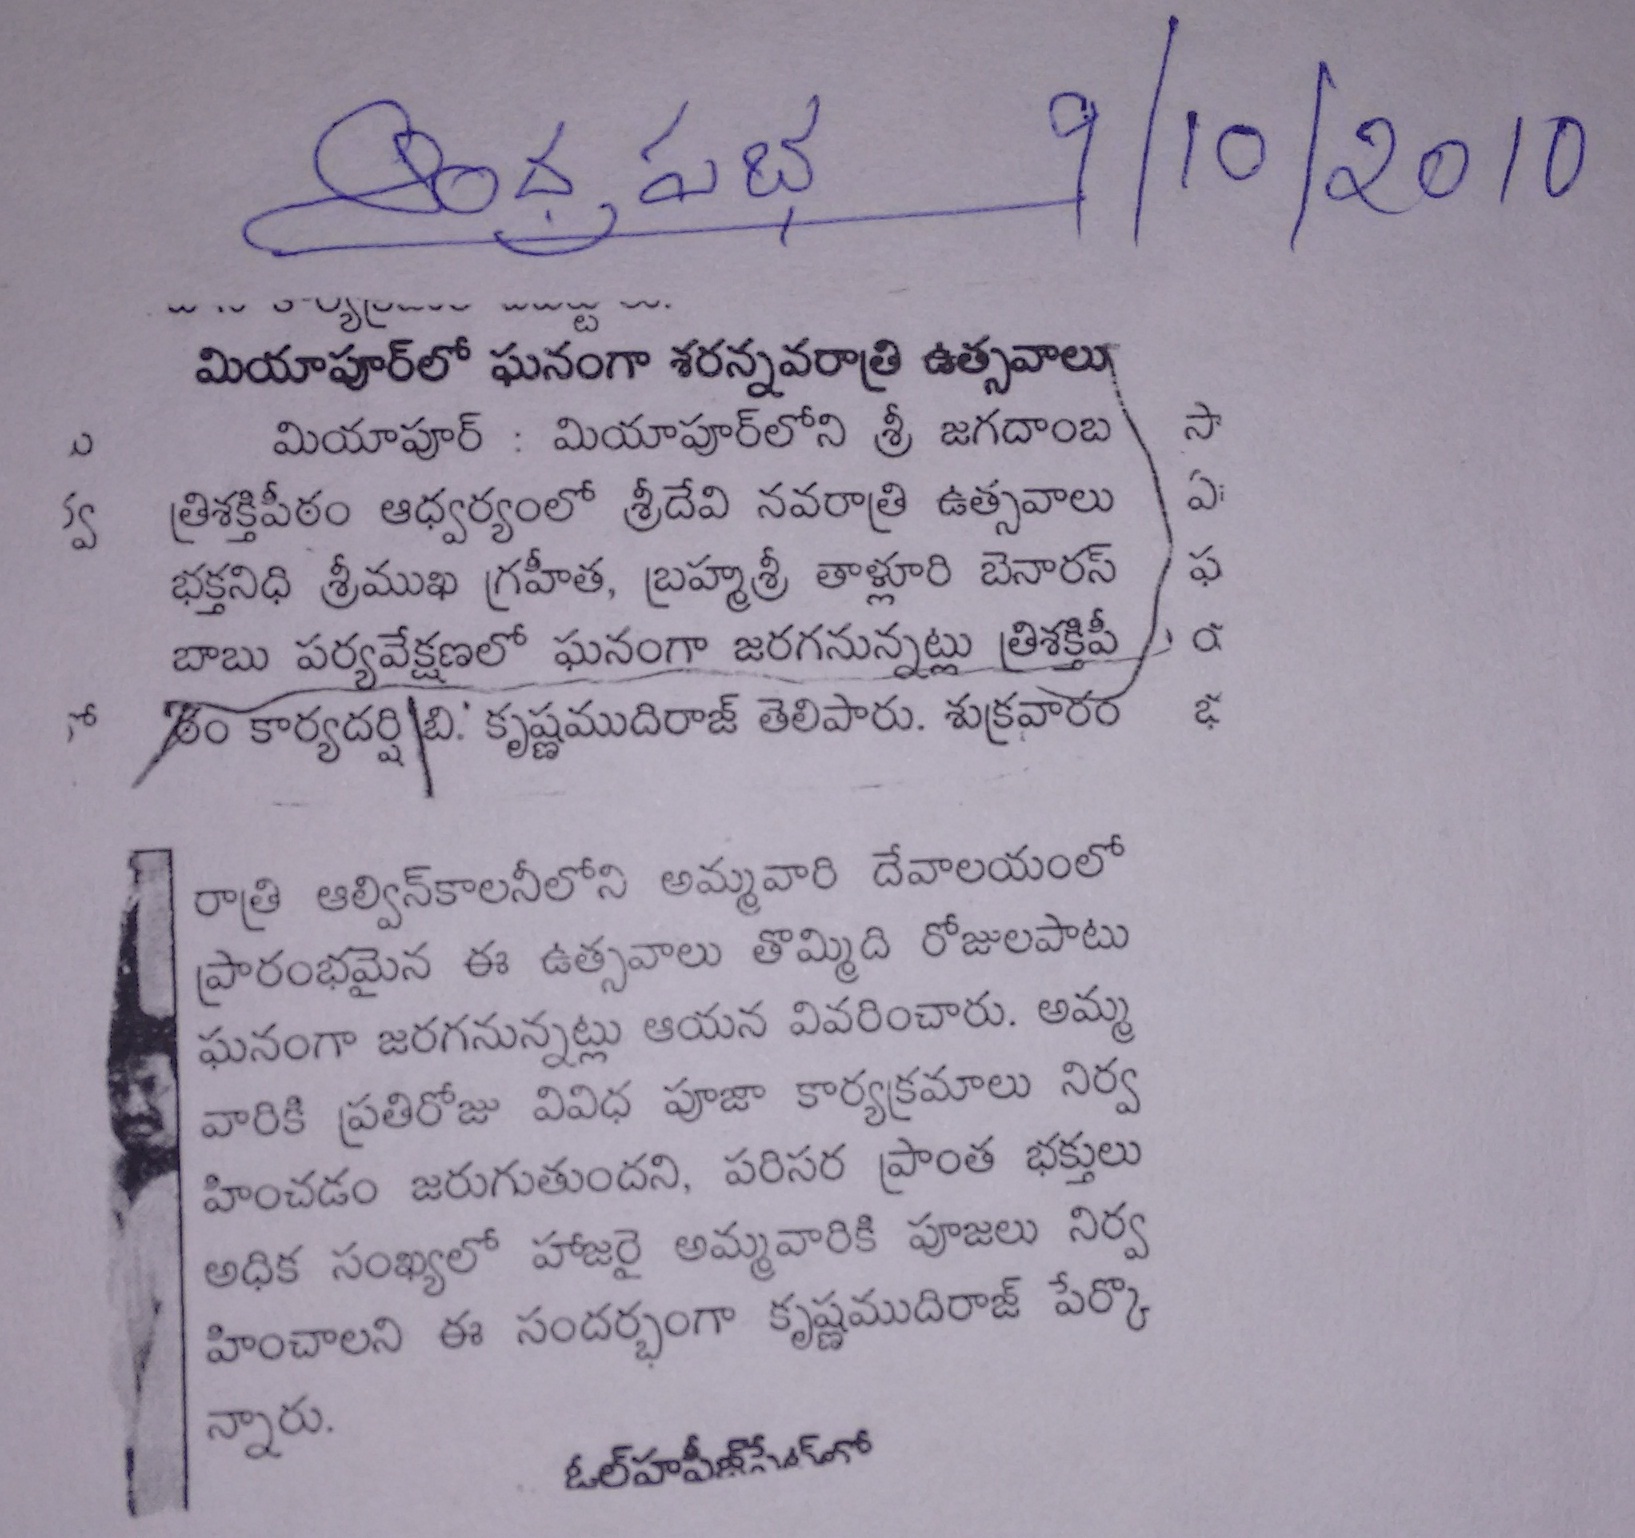 ఆంధ్ర పభ 9/10/2010
మియాపూర్‌లో ఘనంగా శరన్నవరాత్రి ఉత్సవాలు
మియాపూర్ : మియాపూర్‌లోని శ్రీ జగదాంబ
త్రిశక్తిపీఠం ఆధ్వర్యంలో శ్రీదేవి నవరాత్రి ఉత్సవాలు
భక్తనిధి శ్రీముఖ గ్రహీత, బ్రహ్మశ్రీ తాళ్లూరి బెనారస్
బాబు పర్యవేక్షణలో ఘనంగా జరగనున్నట్లు త్రిశక్తిపీ
ఠం కార్యదర్శి బి. కృష్ణముదిరాజ్ తెలిపారు. శుక్రవారం
రాత్రి ఆల్విన్‌కాలనీలోని అమ్మవారి దేవాలయంలో
ప్రారంభమైన ఈ ఉత్సవాలు తొమ్మిది రోజులపాటు
ఘనంగా జరగనున్నట్లు ఆయన వివరించారు. అమ్మ
వారికి ప్రతిరోజు వివిధ పూజా కార్యక్రమాలు నిర్వ
హించడం జరుగుతుందని, పరిసర ప్రాంత భక్తులు
అధిక సంఖ్యలో హాజరై అమ్మవారికి పూజలు నిర్వ
హించాలని ఈ సందర్భంగా కృష్ణముదిరాజ్ పేర్కొ
న్నారు.